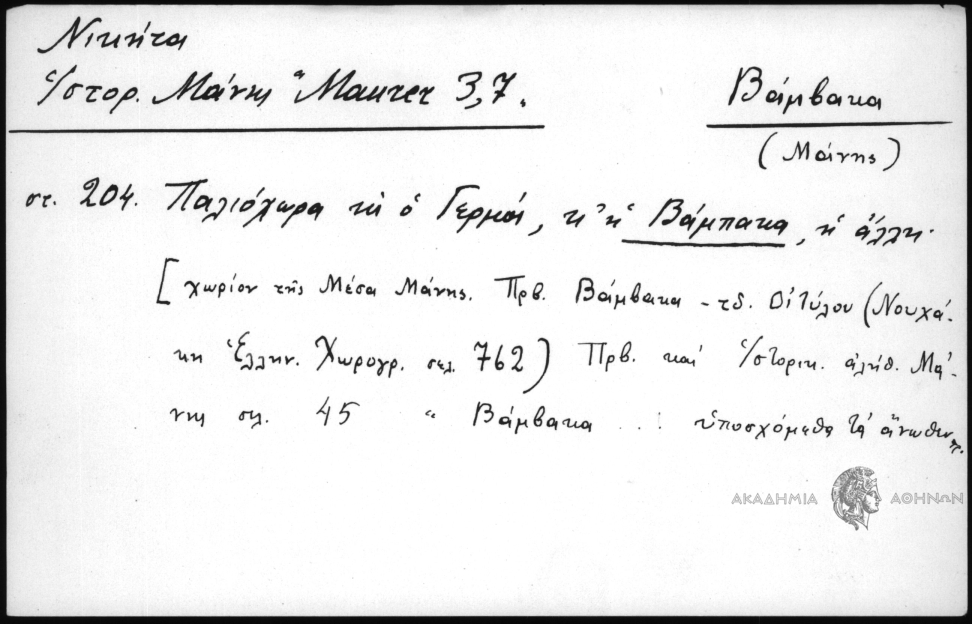 Νικήτα
Ἱστορ. Μάνης "Maurer 3,7.
Βάμβακα
(Μάνης)
στ. 204. Παλιόχωρα κι ὁ Γερμάς, κ' ἡ Βάμπακα, ἡ ἄλλη.
[χωρίον τῆς Μέσα Μάνης. Πρβ. Βάμβακα – τδ. Οἰτύλου (Νουχά-
κη Ἑλλην. Χωρογρ. σελ. 762) Πρβ. καί Ἱστορικ. ἀλήθ. Μά-
νης σλ. 45 " Βάμβακα ... ὑποσχόμεθα τά ἄνωθεν
ΑΚΑΔΗΜΙΑ ΑΘΗΝΩΝ